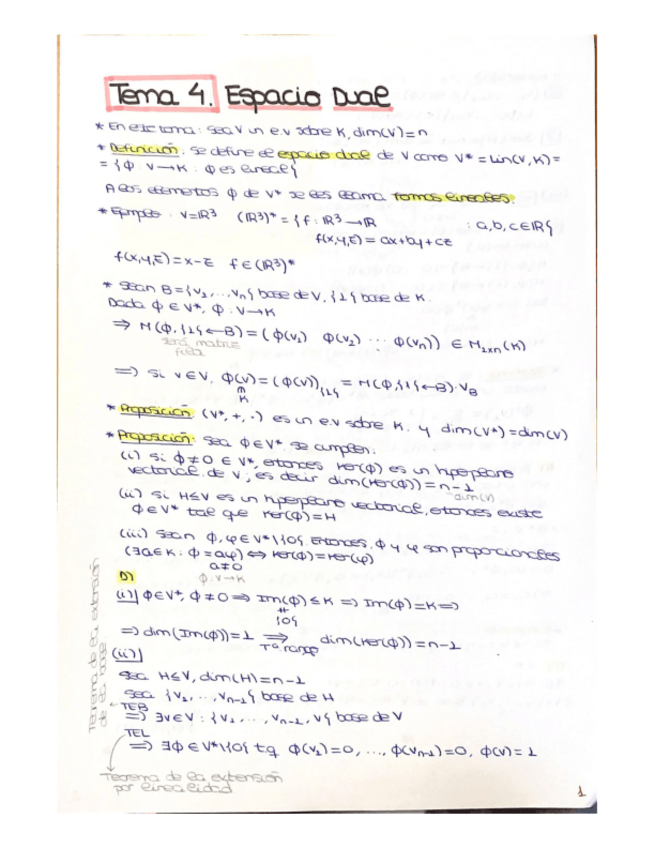 Tema 4. Espacio Dual
* En este tema: sea V un e.v sobre K, dim(V)=n
* Definición: se define el espacio dual de V como V* = Lin(V, K) =
= {ϕ: V→K : ϕ es lineal}
A los elementos ϕ de V* se les llama formas lineales.
* Ejemplo: V=ℝ³ (ℝ³)* = {f: ℝ³→ℝ : a,b,c∈ℝ}
f(x,y,z) = ax+by+cz
f(x,y,z)=x-z f∈(ℝ³)*
* Sean B={v₁,...,vₙ} base de V, {1} base de K.
Dada ϕ∈V*, ϕ: V→K
⇒ M(ϕ,{1}←B)=(ϕ(v₁) ϕ(v₂) ... ϕ(vₙ)) ∈ M₁ₓₙ(K)
será matriz
fila
⇒ Si v∈V, ϕ(v)=(ϕ(v)){1} = M(ϕ,{1}←B)·v_B
∈
K
* Proposición (V*,+,·) es un e.v sobre K. y dim(V*)=dim(V)
* Proposición: sea ϕ∈V*. se cumplen:
(i) Si ϕ≠0 ∈ V*, entonces ker(ϕ) es un hiperplano
vectorial de V; es decir dim(ker(ϕ))=n-1
dim(V)
(ii) Si H≤V es un hiperplano vectorial, entonces existe
ϕ∈V* tal que ker(ϕ)=H
(iii) Sean ϕ,φ∈V*\{0}. Entonces, ϕ y φ son proporcionales
(∃a∈K: ϕ=aφ) ⇔ ker(ϕ)=ker(φ)
a≠0
D) ϕ: V→K
(i)] ϕ∈V*, ϕ≠0 ⇒ Im(ϕ)≤K ⇒ Im(ϕ)=K ⇒
≠
{0}
⇒ dim(Im(ϕ))=1 ⇒ dim(ker(ϕ))=n-1
Tª rango
(ii)]
Sea H≤V, dim(H)=n-1
Sea {v₁,...,vₙ₋₁} base de H
TEB
⇒ ∃v∈V: {v₁,...,vₙ₋₁,v} base de V
TEL
⇒ ∃ϕ∈V*\{0} tq ϕ(v₁)=0, ..., ϕ(vₙ₋₁)=0, ϕ(v)=1
Teorema de la extensión
por linealidad
Teorema de la extensión
de la base
1